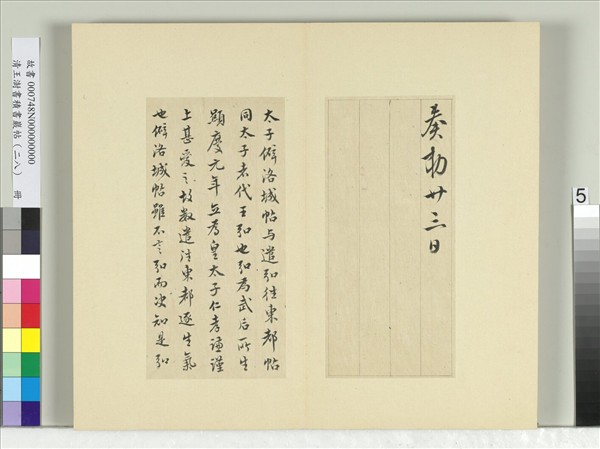 奏勅廿三日
太子懈洛城帖与遣弘往東都帖
同太子者代王弘也弘為武后所生
顯慶元年立為皇太子仁孝謙謹
上甚愛之故數遣往東都逐生氣
也懈洛城帖雖不言弘而決知是弘
故書 000748N000000000
清王澍書積書巖帖(二八) 冊
5